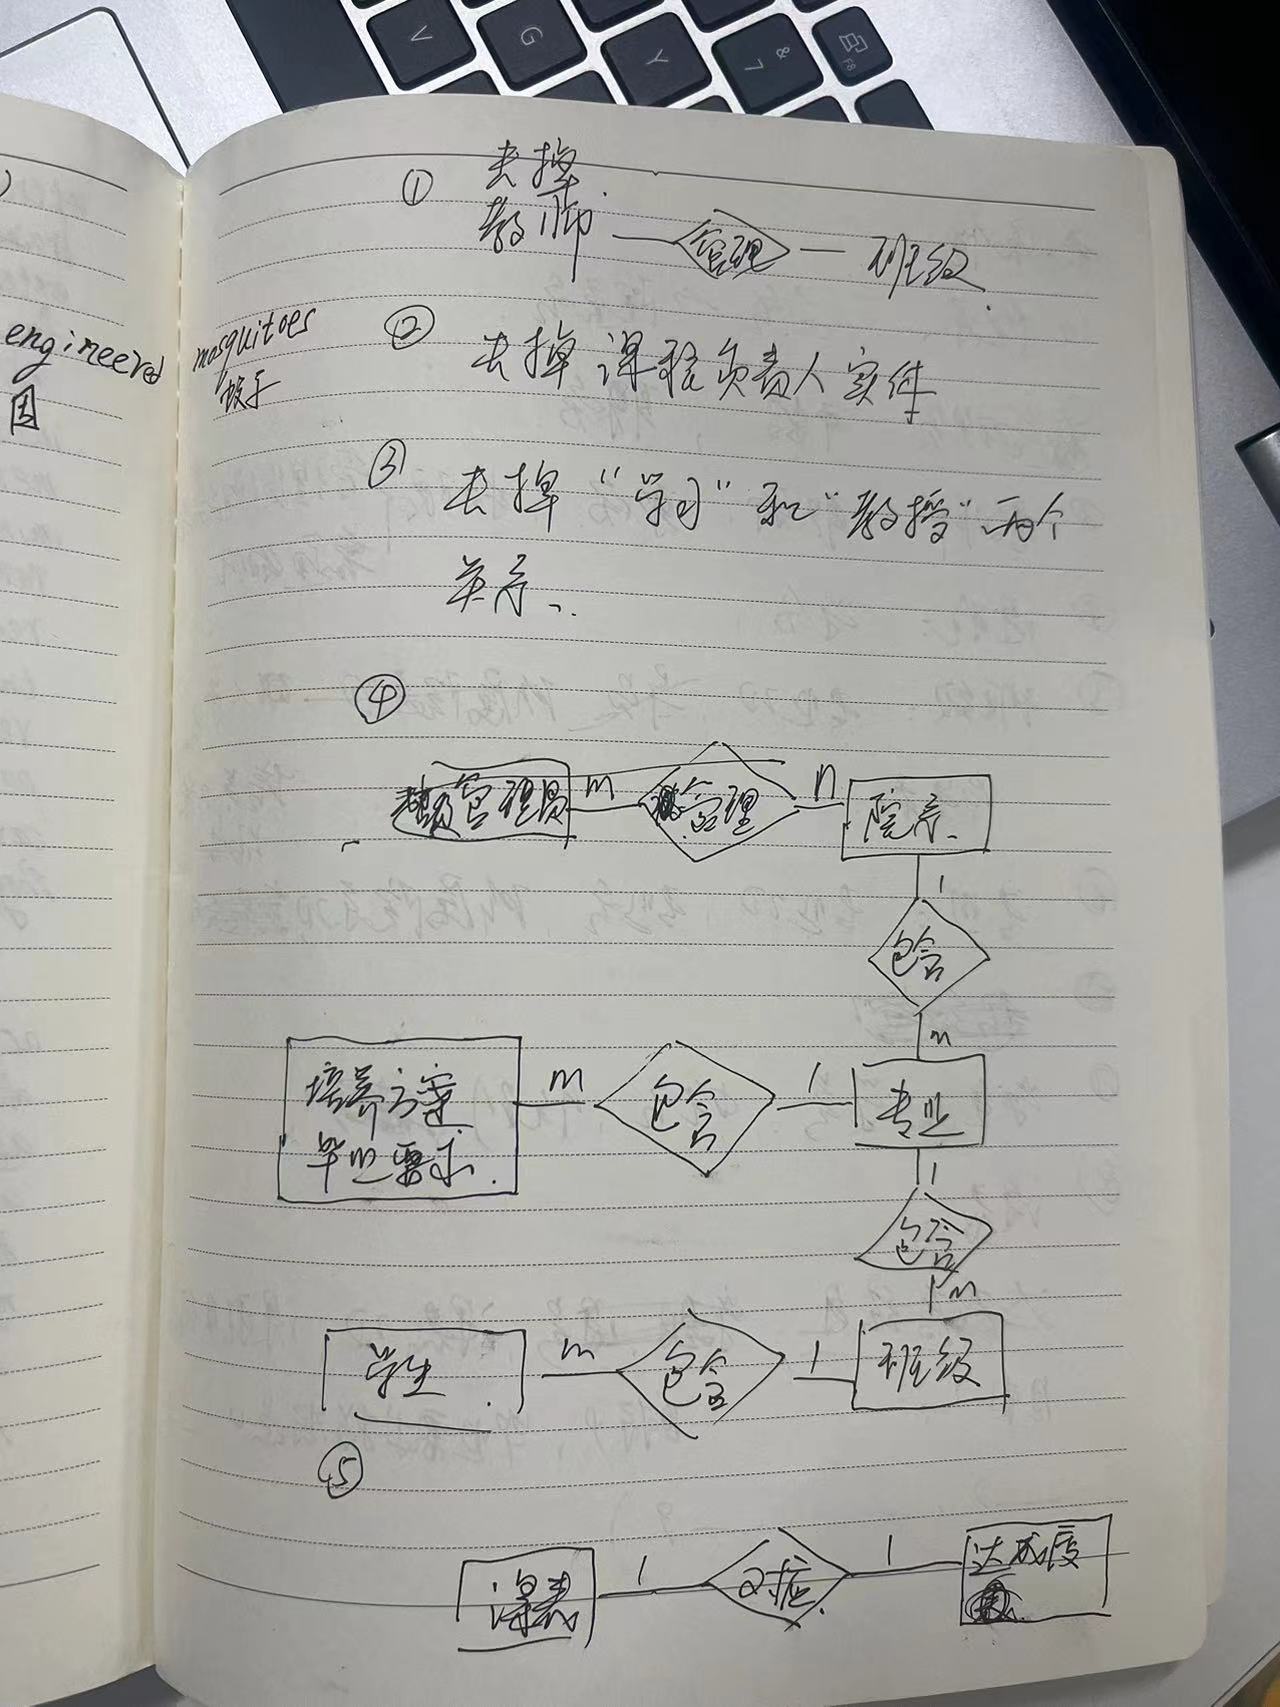 V
G
Y
&
7
F8
① 去掉
教师 管理 班级
engineered
mosquitoes
蚊子
② 去掉 课程负责人实体
③ 去掉 "学习" 和 "教授" 两个
关系、
④
管理员 m 管理 n 院系
1
包含
n
培养方案
毕业要求
m 包含 1 专业
1
包含
m
学生 m 包含 1 班级
⑤
课表 1 对应 1 达成度